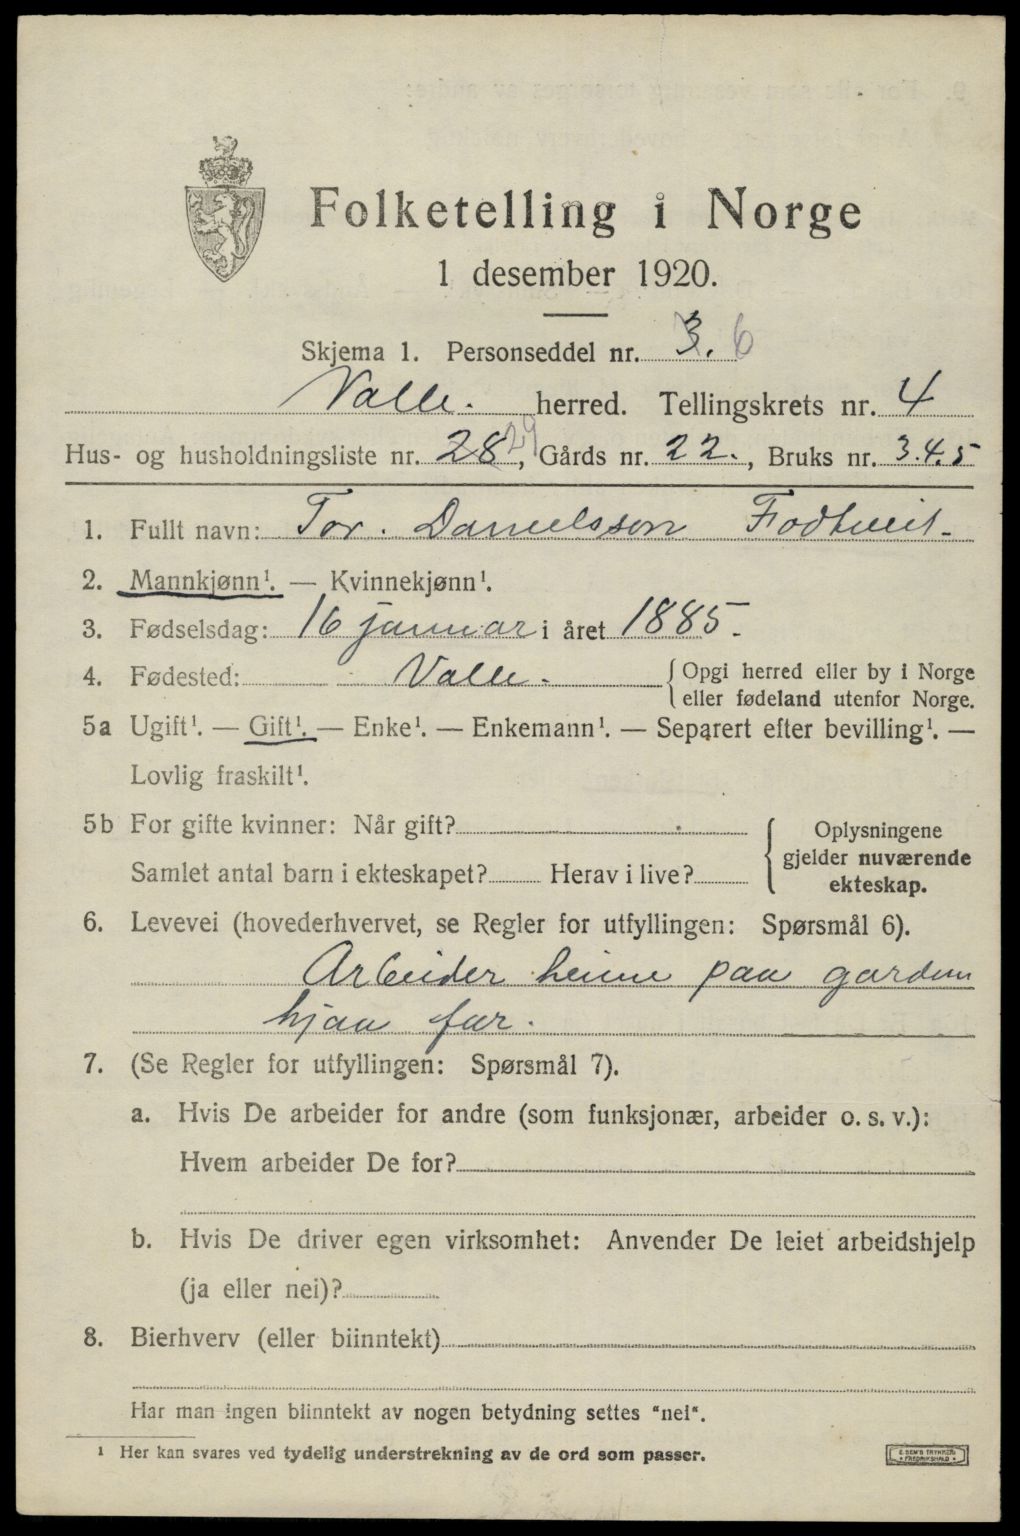 Folketelling i Norge
1 desember 1920.
Skjema 1. Personseddel nr. 3. 6
Valle. herred. Tellingskrets nr. 4
Hus- og husholdningsliste nr. 28 29, Gårds nr. 22., Bruks nr. 3.4.5
1. Fullt navn: Tor. Danielsson Fodtveit-
2. Mannkjønn¹. — Kvinnekjønn¹.
3. Fødselsdag: 16 januar i året 1885.
4. Fødested: Valle. Opgi herred eller by i Norge
eller fødeland utenfor Norge.
5a Ugift¹. — Gift¹. — Enke¹. — Enkemann¹. — Separert efter bevilling¹. —
Lovlig fraskilt¹.
5b For gifte kvinner: Når gift?
Samlet antal barn i ekteskapet? Herav i live?
Oplysningene
gjelder nuværende
ekteskap.
6. Levevei (hovederhvervet, se Regler for utfyllingen: Spørsmål 6).
Arbeider heime paa garden
hjaa far.
7. (Se Regler for utfyllingen: Spørsmål 7).
a. Hvis De arbeider for andre (som funksjonær, arbeider o. s. v.):
Hvem arbeider De for?
b. Hvis De driver egen virksomhet: Anvender De leiet arbeidshjelp
(ja eller nei)?
8. Bierhverv (eller biinntekt)
Har man ingen biinntekt av nogen betydning settes "nei".
¹ Her kan svares ved tydelig understrekning av de ord som passer.
E. SEM'S TRYKKERI
FREDRIKSHALD